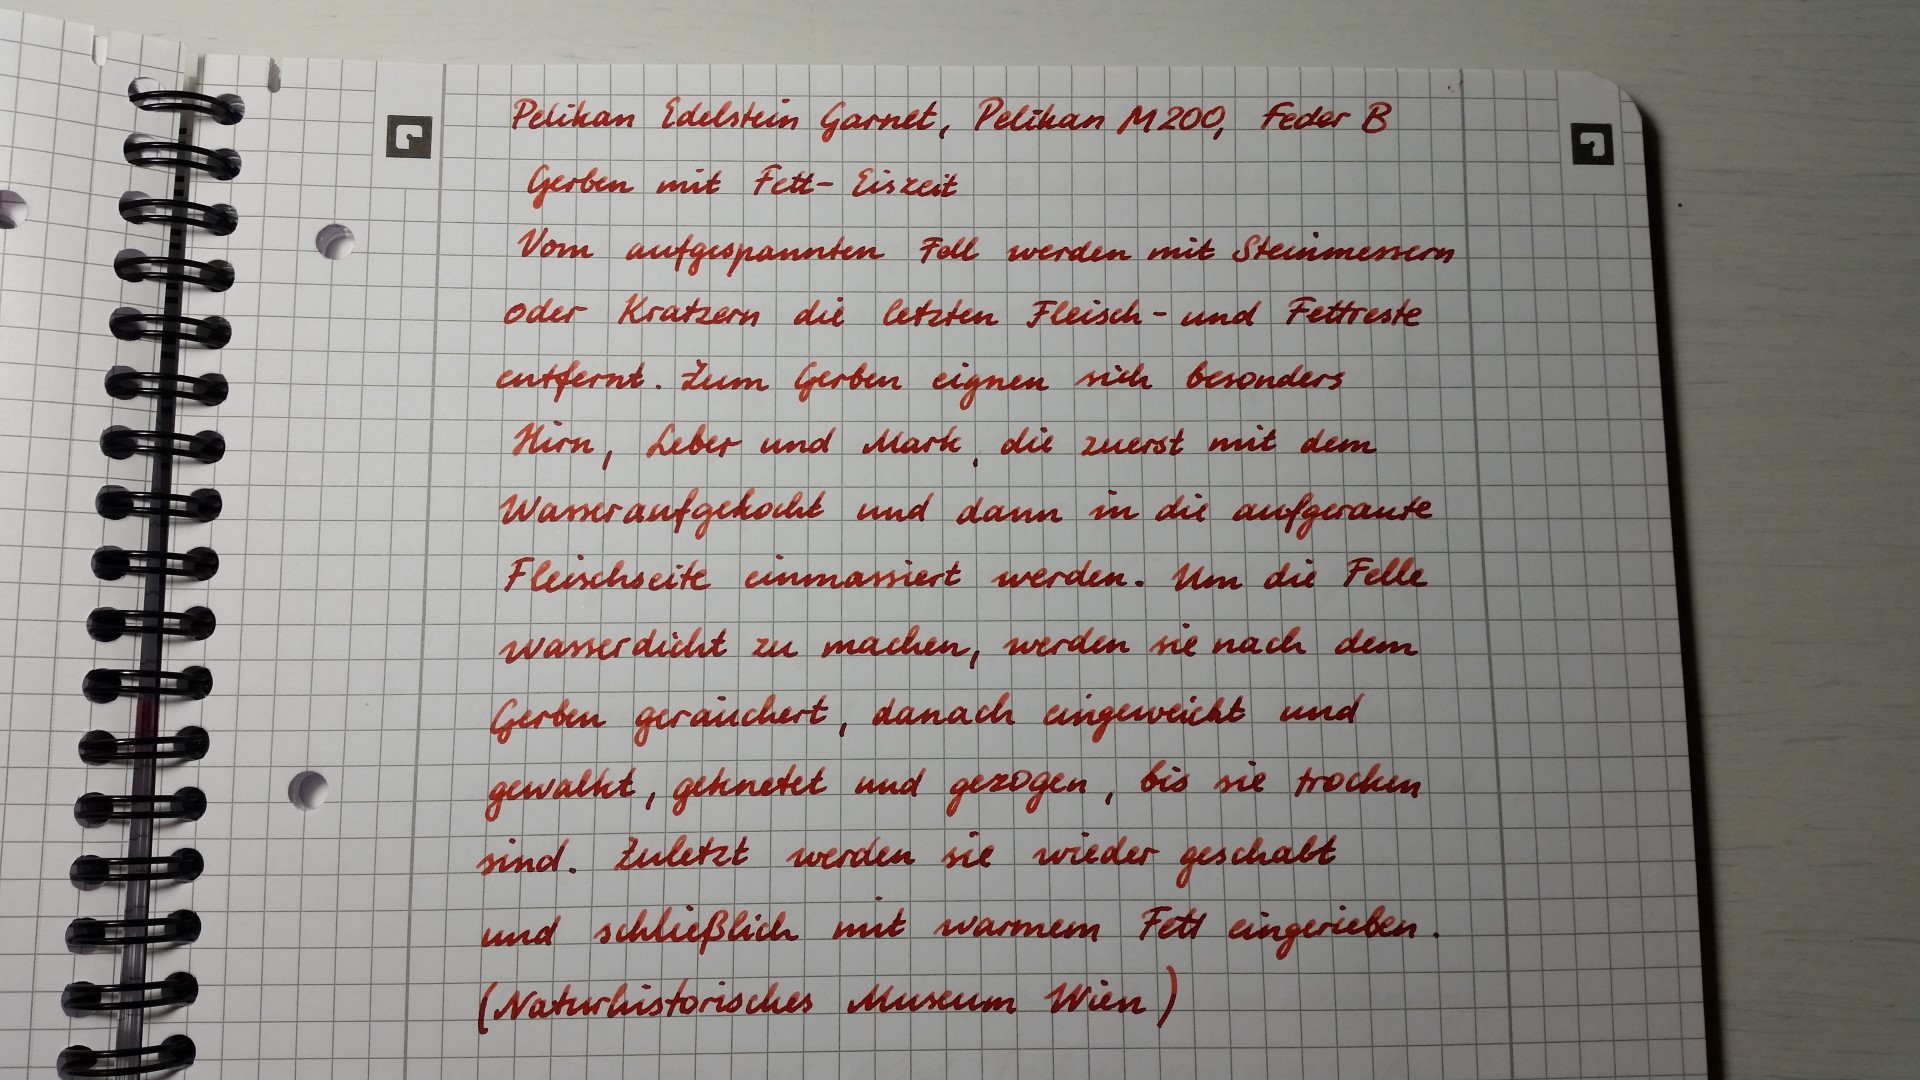 Pelikan Edelstein Garnet, Pelikan M200, Feder B
Gerben mit Fett- Eiszeit
Vom aufgespannten Fell werden mit Steinmessern
oder Kratzern die letzten Fleisch- und Fettreste
entfernt. Zum Gerben eignen sich besonders
Hirn, Leber und Mark, die zuerst mit dem
Wasser aufgekocht und dann in die aufgeraute
Fleischseite einmassiert werden. Um die Felle
wasserdicht zu machen, werden sie nach dem
Gerben geräuchert, danach eingeweicht und
gewalkt, geknetet und gezogen, bis sie trocken
sind. Zuletzt werden sie wieder geschabt
und schließlich mit warmem Fett eingerieben.
(Naturhistorisches Museum Wien)